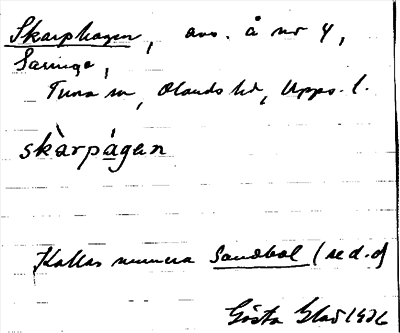 Skarphagen, avs. å nr 4,
Saringe,
Tuna sn, Olands hd, Upps. l.
skàrpágen
Kallas numera Sandbol (se d.o)
Gösta Glad 1926